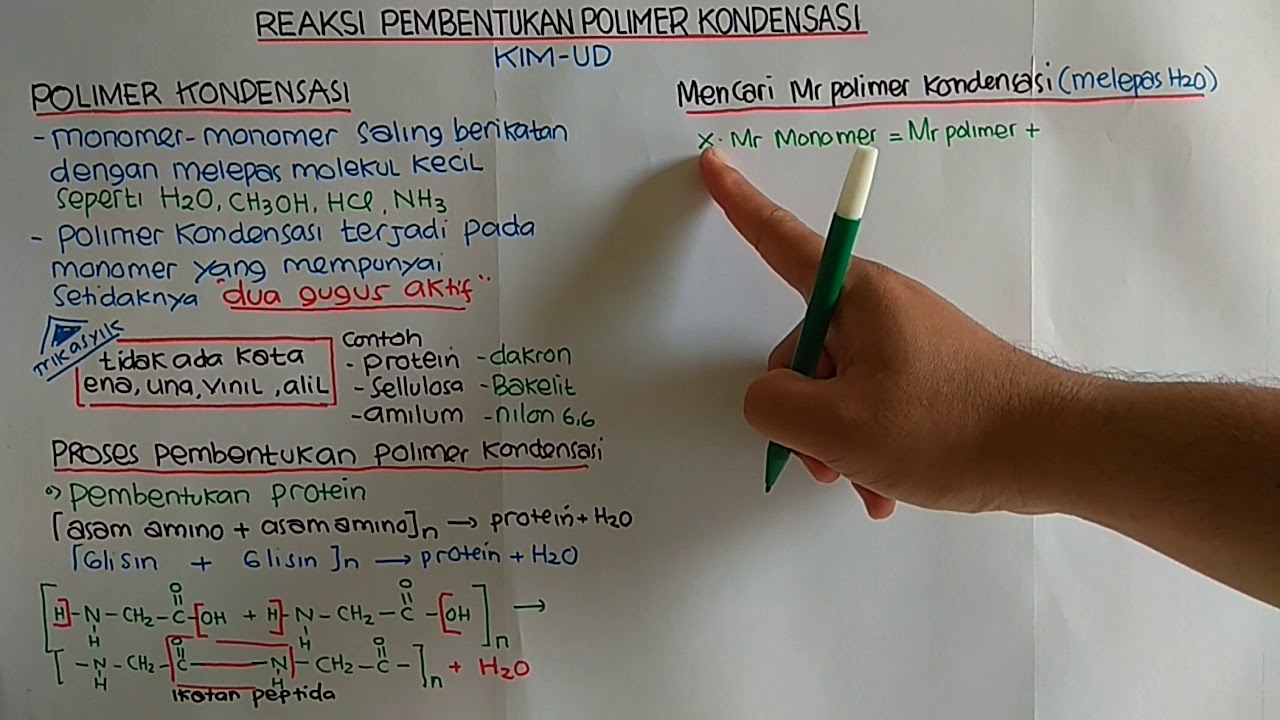 REAKSI PEMBENTUKAN POLIMER KONDENSASI
KIM-UD
POLIMER KONDENSASI
- monomer-monomer saling berikatan
dengan melepas molekul kecil
seperti H2O, CH3OH, HCl, NH3
- Polimer Kondensasi terjadi pada
monomer yang mempunyai
setidaknya "dua gugus aktif"
TRIKASYIK
tidak ada kata
ena, una, vinil, alil
Contoh
- protein - dakron
- sellulosa - Bakelit
- amilum - nilon 6,6
PROSES Pembentukan polimer Kondensasi
°) Pembentukan protein
[asam amino + asam amino]n → protein + H2O
[Glisin + Glisin]n → protein + H2O
O O
[H]-N-CH2-C-[OH + H]-N-CH2-C-[OH]n →
H H
O O
[-N-CH2-C-N-CH2-C-]n + H2O
H H
Ikatan peptida
Mencari Mr polimer Kondensasi (melepas H2O)
X. Mr Monomer = Mr polimer +